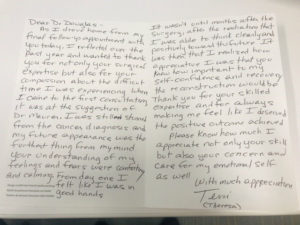 Dear Dr Douglas -
As I drove home from my
final follow up appointment with
you today, I reflected over the
past year and wanted to thank
you for not only your surgical
expertise but also for your
compassion about the difficult
time I was experiencing. When
I came to the first consultation
it was at the suggestion of
Dr. I was still
from the cancer diagnosis and
my future appearance was the
furthest thing from my mind
Your understanding of my
feelings and fears were comforting
and calming. From day one I
felt like I was in
good hands
It wasn't until months after the
surgery, after the radiation that
I was able to think clearly and
positively toward the future. It
was then that I realized how
appearance I was that you
knew how important to my
self-confidence and receiving
the reconstruction would be
Thank you for your skilled
expertise and for always
making me feel like I deserved
the positive outcome achieved
Please know how much I
appreciate not only your skill
but also your concern and
care for my emotional self
as well
With much appreciation
Terri